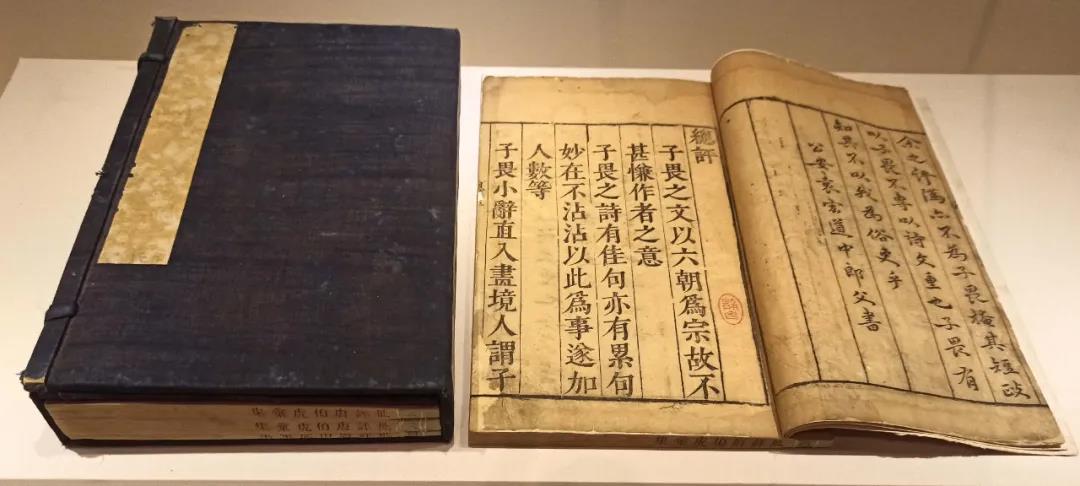 余之評隲亦不為子畏掩其短政
以子畏不專以詩文重也子畏有
知其不以我為俗吏乎
公安袁宏道中郎父書
總評
子畏之文以六朝爲宗故不
甚慊作者之意
子畏之詩有佳句亦有累句
妙在不沾沾以此爲事遂加
人數等
子畏小辭直入畫境人謂子
批評唐伯虎彙集
批評唐伯虎彙集